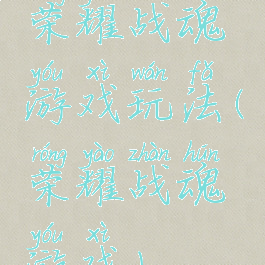 荣耀战魂
yóu xì wán fǎ
游戏玩法(
róng yào zhàn hún
荣耀战魂
yóu xì
游戏)